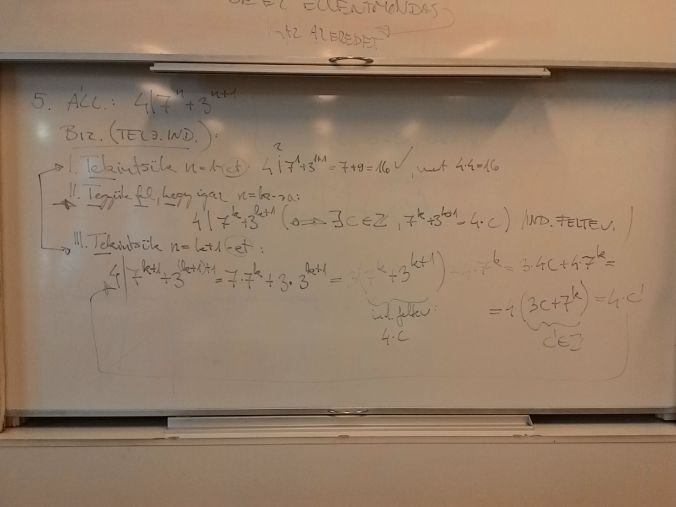 DE EZ ELLENTMONDÁS
AZ EREDETI
5. ÁLL.: 4|7^n+3^{n+1}
BIZ. (TELJ.IND.):
I. Tekintsük n=1-et: 4 |^? 7^1+3^{1+1}=7+9=16 ✓, mert 4·4=16
II. Tegyük fel, hogy igaz n=k-ra:
4 | 7^k+3^{k+1} (⟺ ∃c∈Z, 7^k+3^{k+1}=4·c) IND. FELTEV.
III. Tekintsük n=k+1-et:
4 | 7^{k+1}+3^{(k+1)+1}=7·7^k+3·3^{k+1}=3(7^k+3^{k+1})+4·7^k=3·4c+4·7^k=
ind. feltev: =4(3c+7^k)=4·c'
4·c c'∈Z